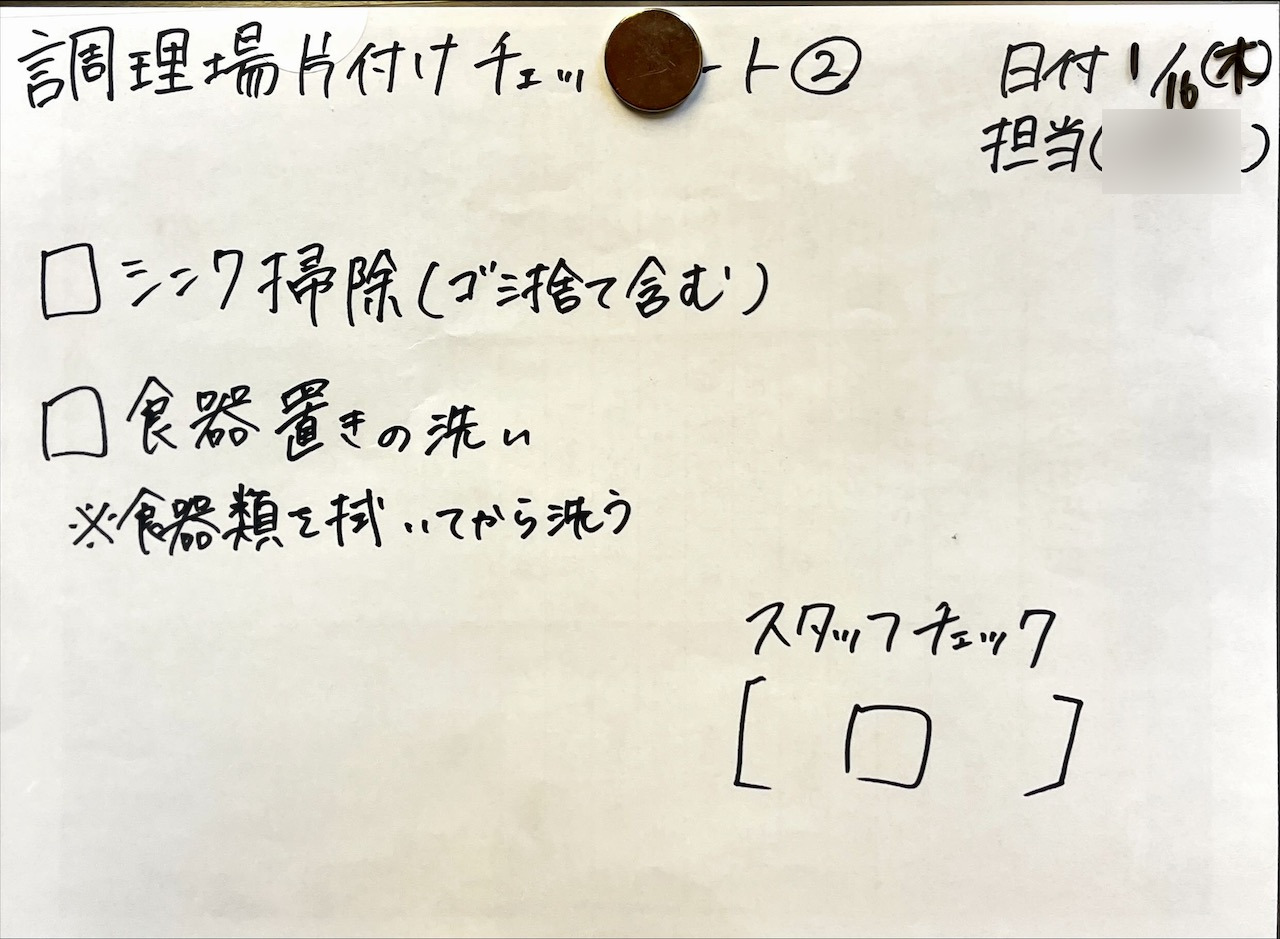 調理場片付けチェッ ート②
日付 1/16(木)
担当( )
□シンク掃除(ゴミ捨て含む)
□食器置きの洗い
※食器類を拭いてから洗う
スタッフチェック
[ □ ]